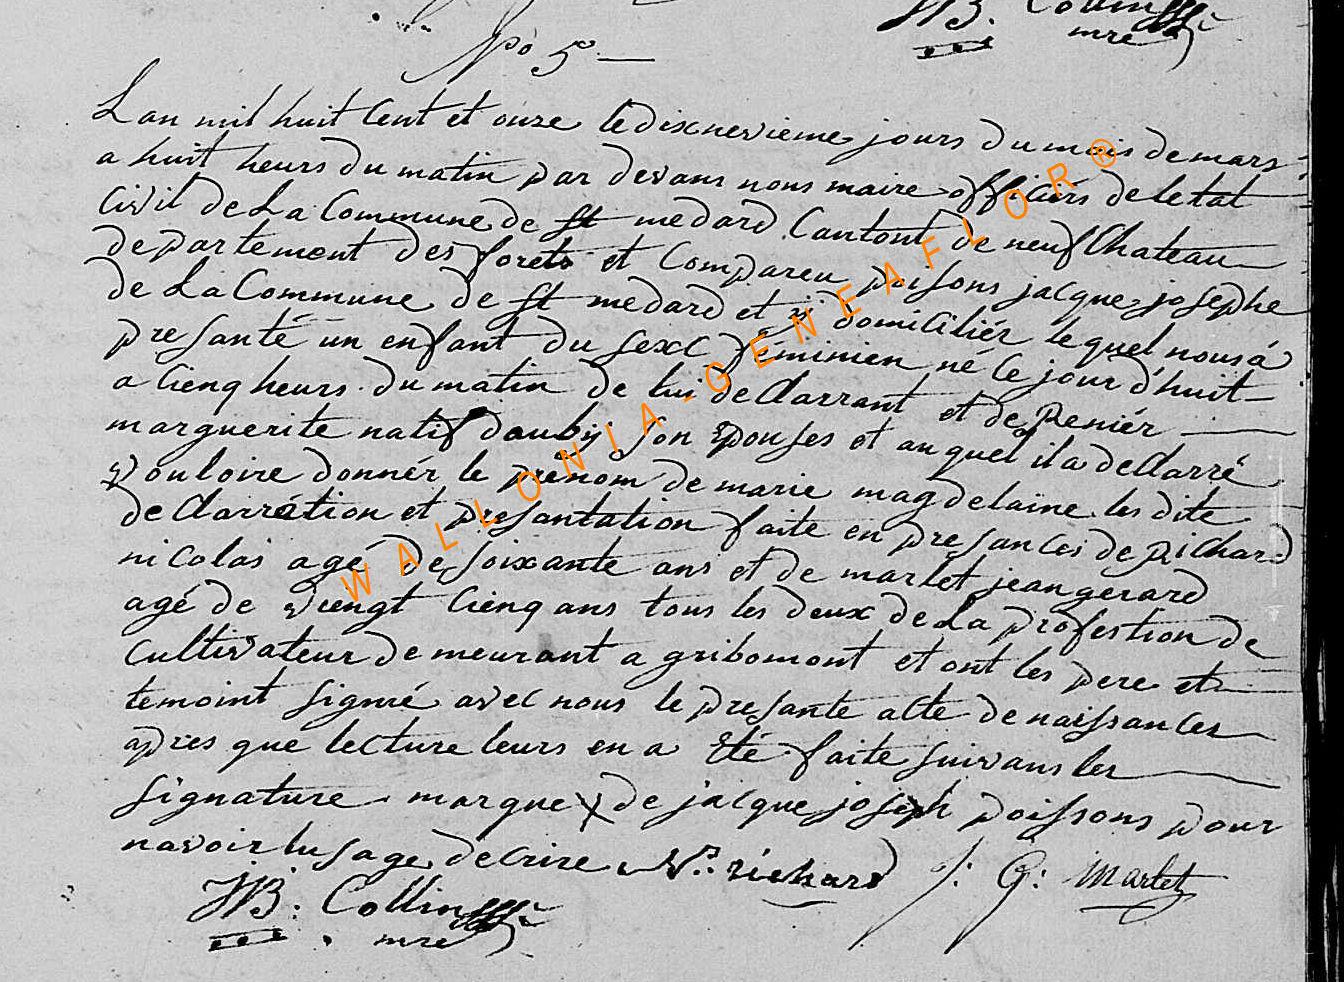 JB. Collin
mre
No 5
Lan mil huit Cent et onze le dixnevieme jours du mois de mars
a huit heurs du matin par devans nous maire officiers de letat
Civil de La Commune de St medard Cantont de neufChateau
departement des forets et Compareu poisons jacque josephe
de La Commune de St medard et y domiciliér lequel nous á
presanté un enfant du sexe féminien né Ce jour d'huit
a Cienq heurs du matin de lui deClarrant et de Reniér
marguerite natif daubij son Epouses et auquel il a deClarré
vouloire donnér le prénom de marie magdelaine les dite
deClarrétion et presantation faite en presances de RiChard
nicolas agé de soixante ans et de marlet jean gerard
agé de Viengt Cienq ans tous les deux de La profestion de
Cultivateur demeurant a gribomont et ont les pere et
temoint signié avec nous le presante acte de naissances
apres que lecture leurs en a Eté faite suivans les
signature marque X de jacque joseph poissons pour
navoir lusage decrire N. richard J: G: Marlet
JB. Collin
mre
WALLONIA-GENEAFLOR®